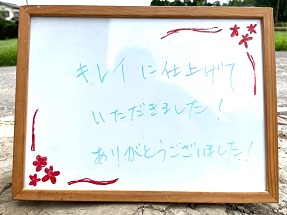 キレイに仕上げて
いただきました!
ありがとうございました!